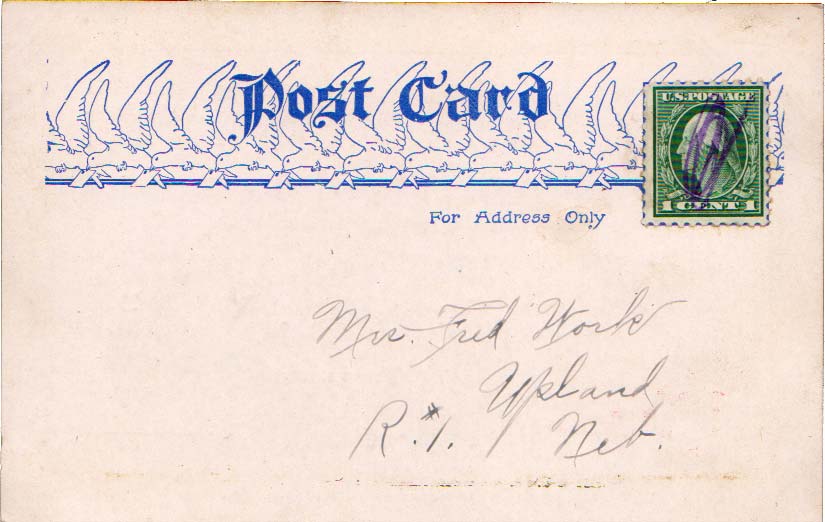 Post Card
U.S. POSTAGE
1 CENT 1
For Address Only
Mrs. Fred Work
Upland
R.#1. Neb.